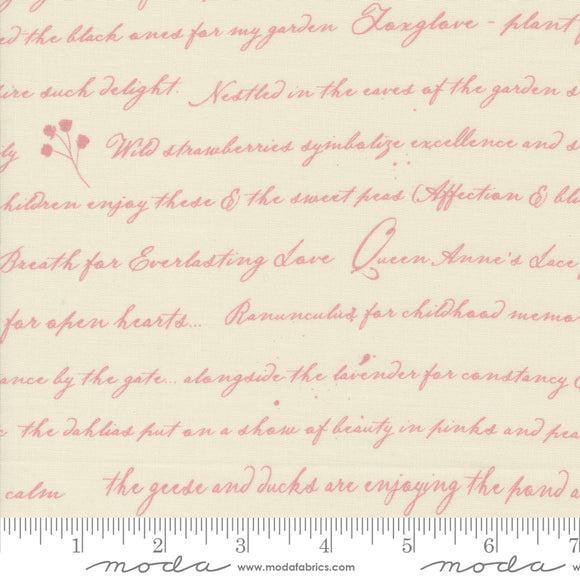 ed the black ones for my garden Foxglove - plant
ire such delight. Nestled in the eaves of the garden s
ly Wild strawberries symbolize excellence and s
hildren enjoy these & the sweet peas (Affection & bli
Breath for Everlasting Love Queen Anne's Lace
for open hearts... Ranunculus for childhood memo
ance by the gate... alongside the lavender for constancy
the dahlias put on a show of beauty in pinks and pea
calm the geese and ducks are enjoying the pond a
1 2 3 4 5 6 7
moda www.modafabrics.com moda